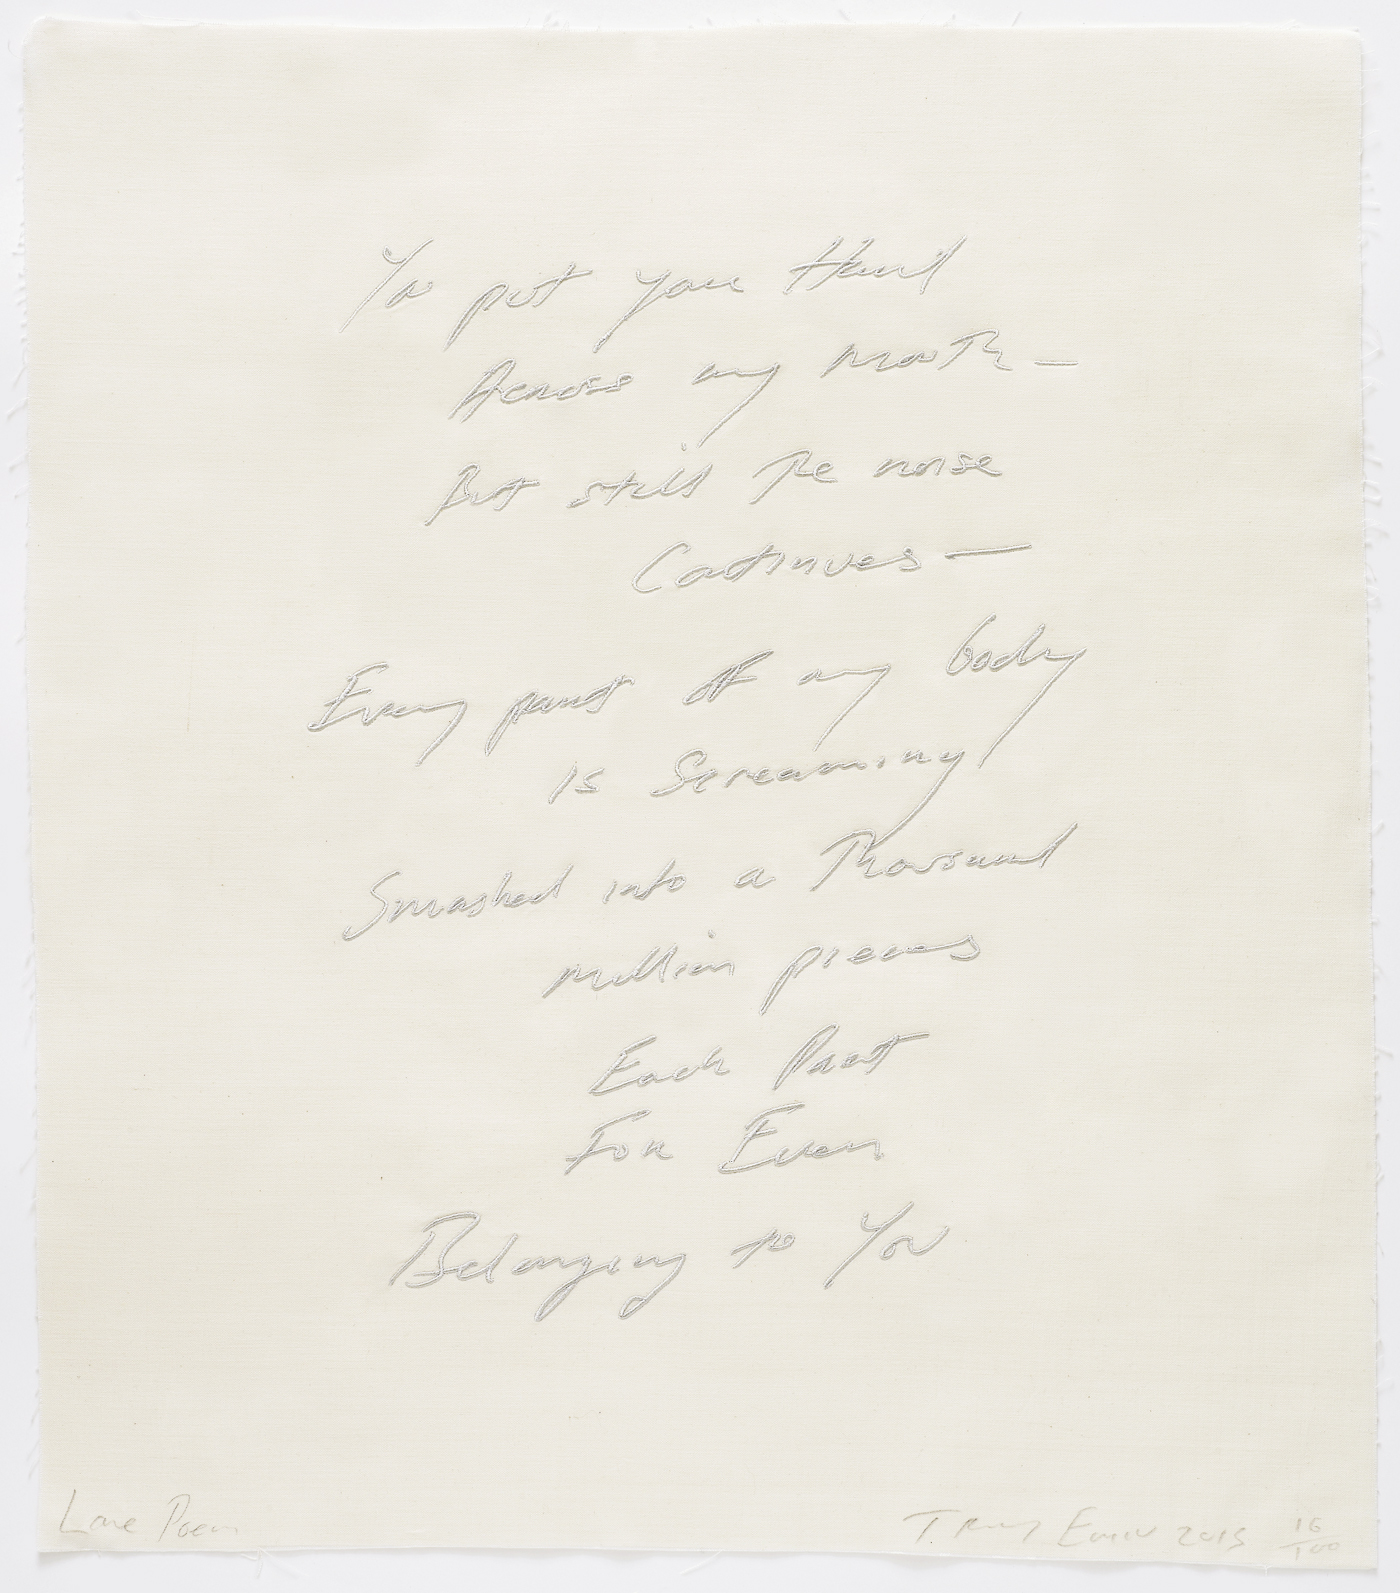 You put your Hand
Across my mouth —
But still the noise
Continues —
Every part of my body
is Screaming
Smashed into a Thousand
Million pieces
Each Part
For Ever
Belonging to You
Love Poem
Tracey Emin 2015 16/100